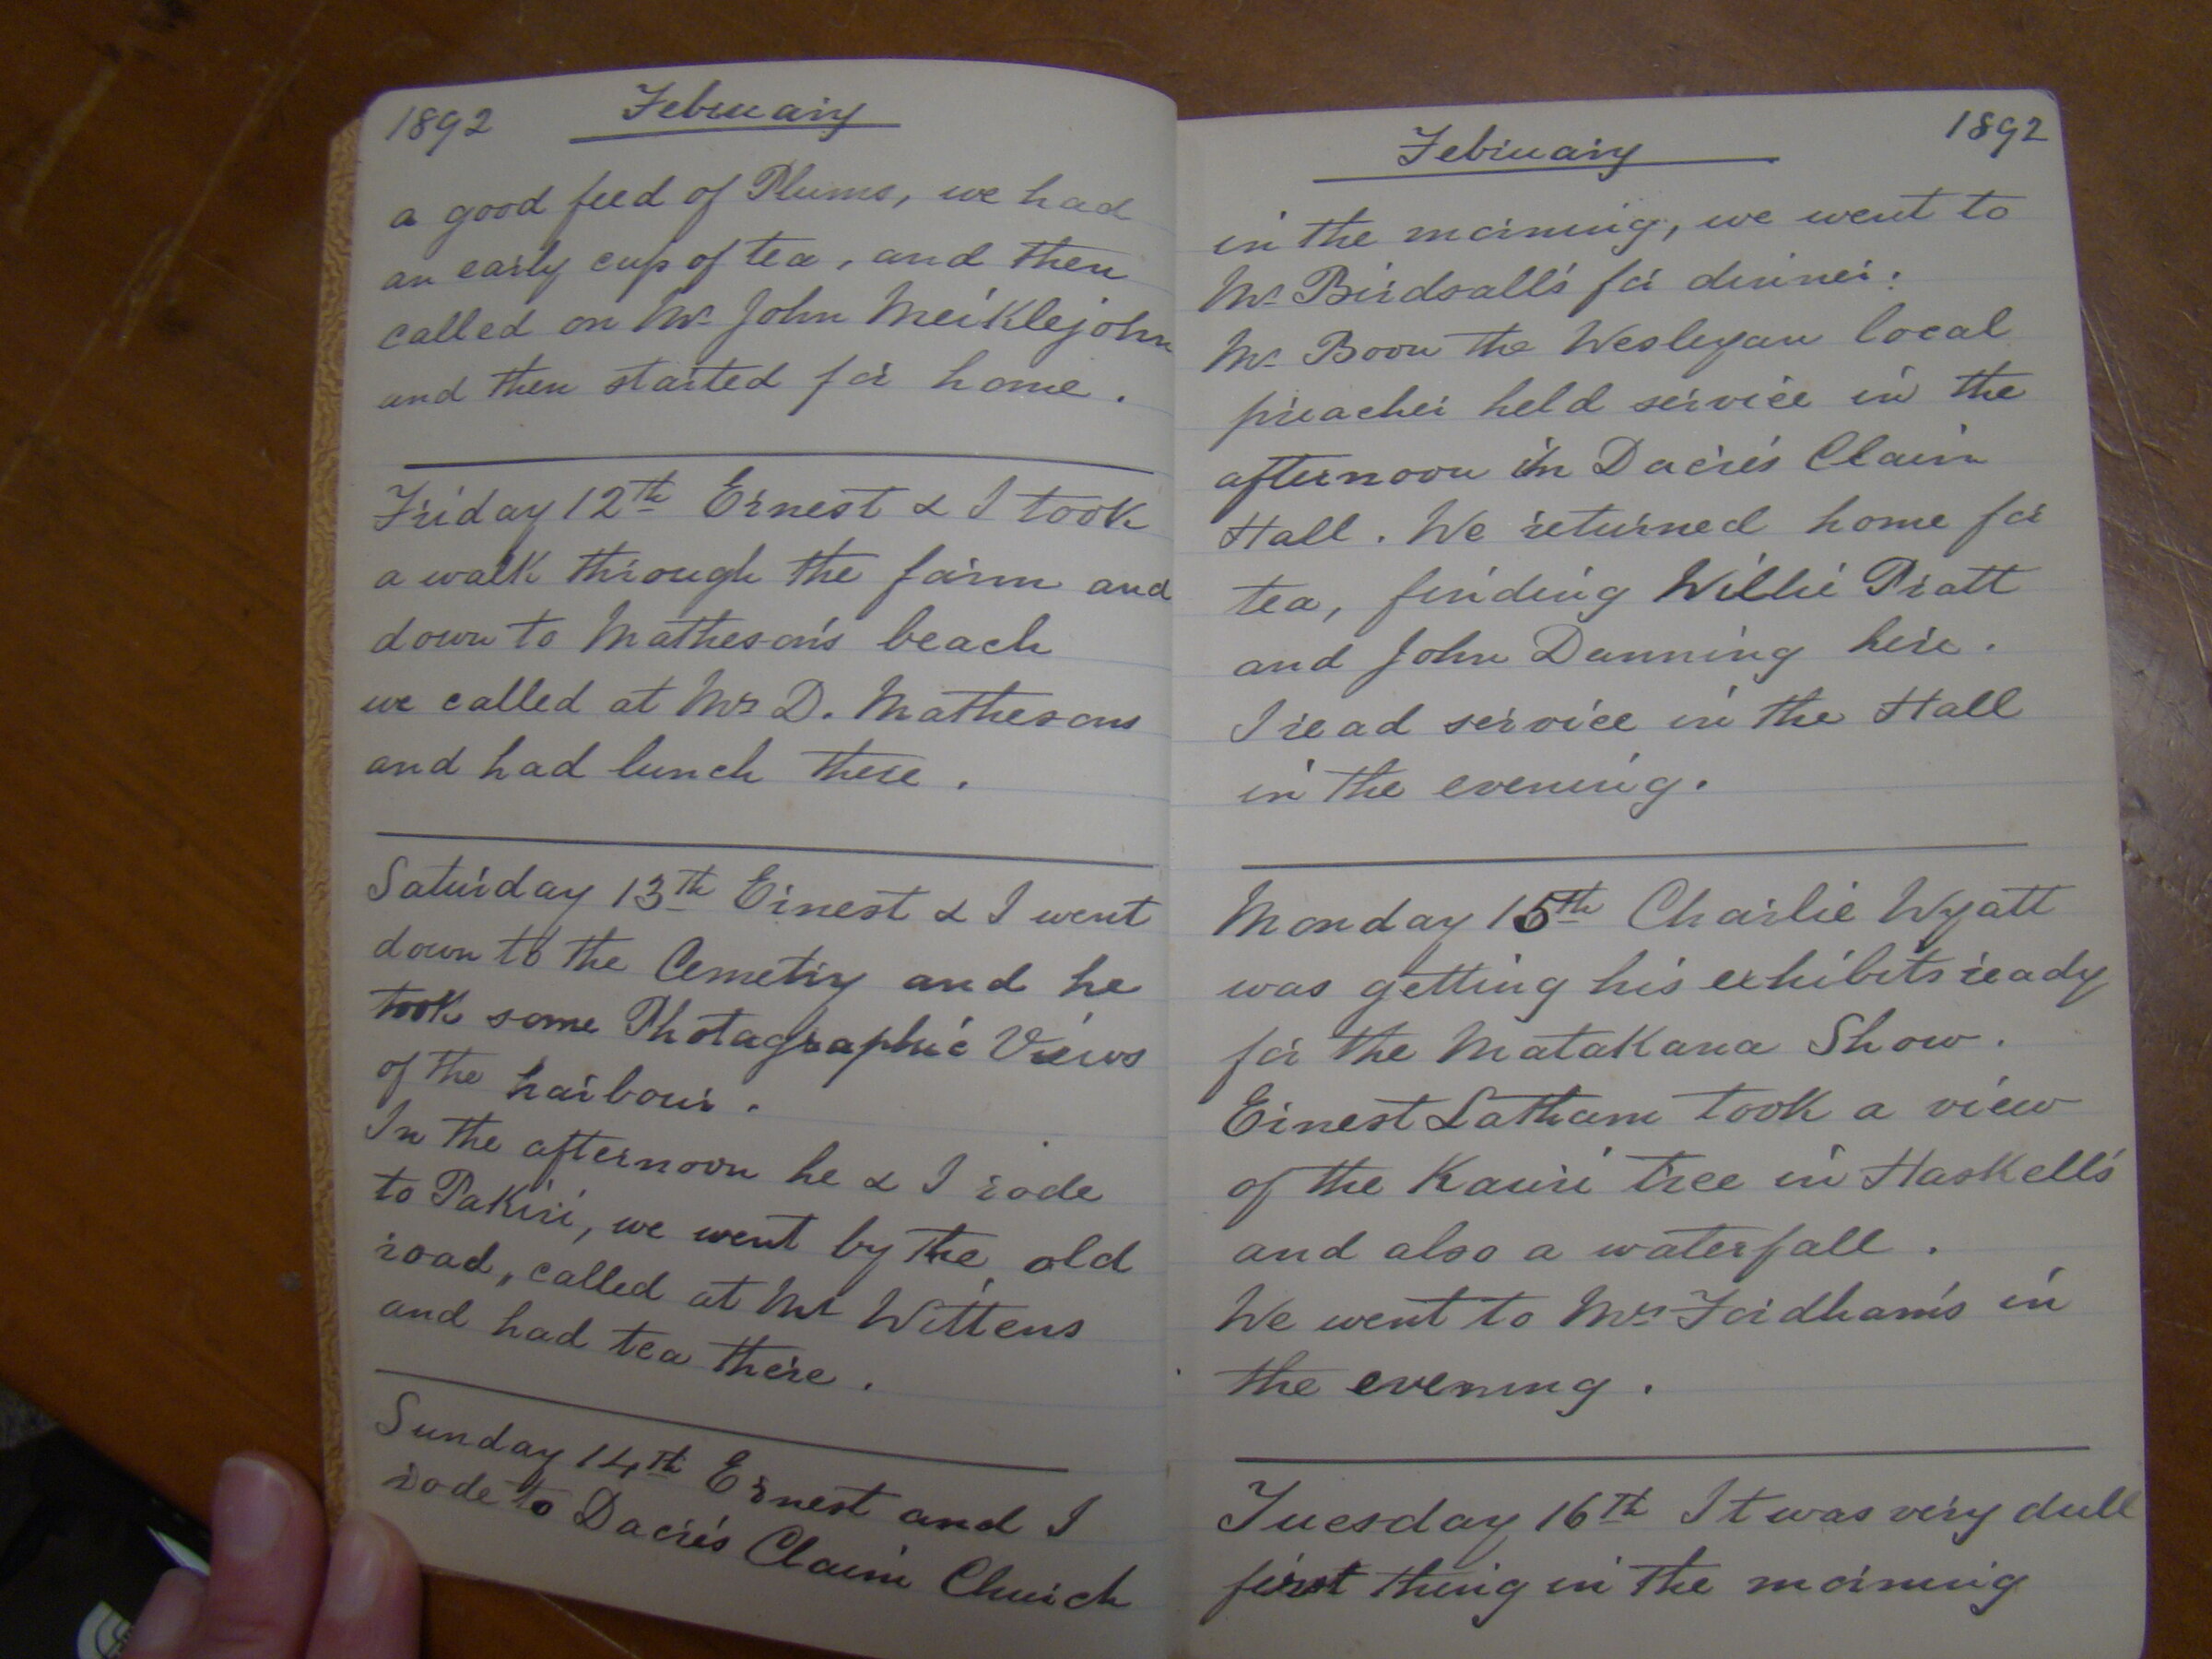 1892 February
a good feed of Plums, we had
an early cup of tea, and then
called on Mr John Meiklejohn
and then started for home.
Friday 12th Ernest & I took
a walk through the farm and
down to Matheson's beach
we called at Mrs D. Mathesons
and had lunch there.
Saturday 13th Ernest & I went
down to the Cemetry and he
took some Photagraphic Views
of the harbour.
In the afternoon he & I rode
to Pakiri, we went by the old
road, called at Mr Wittens
and had tea there.
Sunday 14th Ernest and I
rode to Dacre's Claim Church
February 1892
in the morning, we went to
Mr Birdsall's for dinner.
Mr Boon the Wesleyan local
preacher held service in the
afternoon in Dacre's Claim
Hall. We returned home for
tea, finding Willie Pratt
and John Dunning here.
I read service in the Hall
in the evening.
Monday 15th Charlie Wyatt
was getting his exhibits ready
for the Matakana Show.
Ernest Latham took a view
of the Kauri tree in Haskell's
and also a waterfall.
We went to Mrs Fordham's in
the evening.
Tuesday 16th It was very dull
first thing in the morning